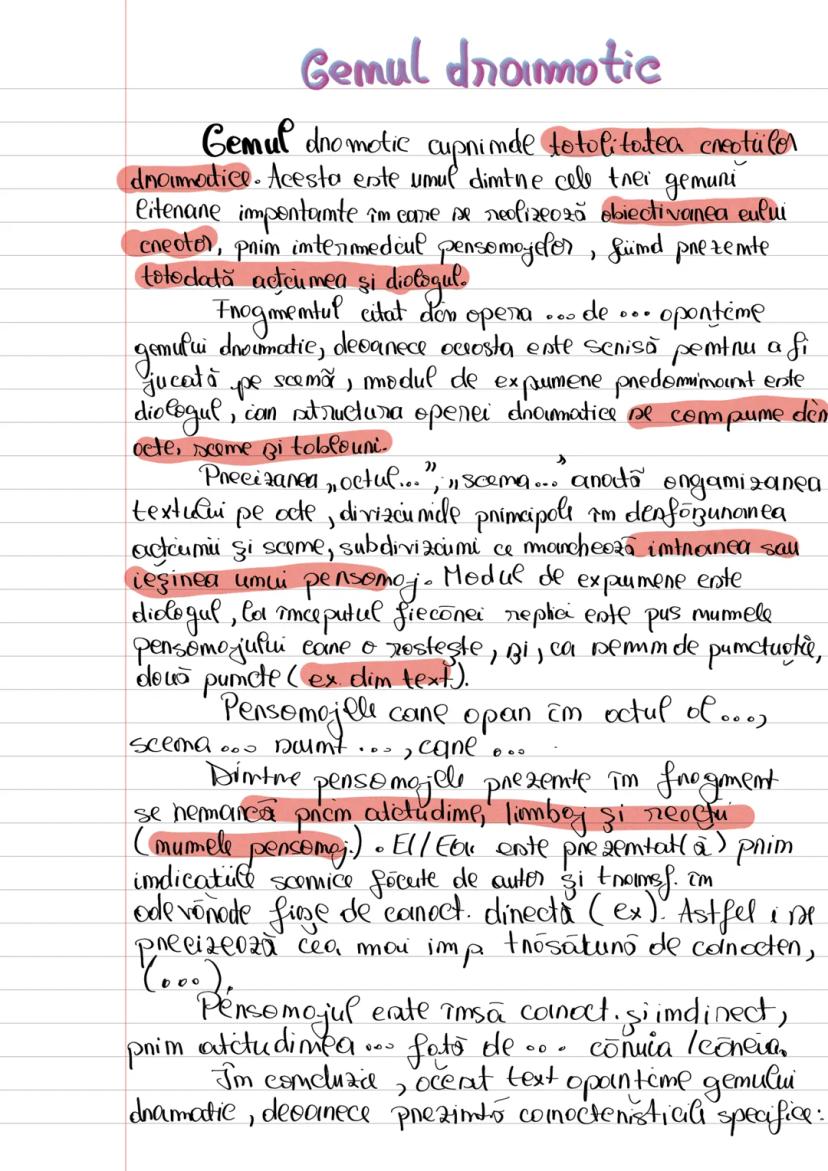 Genul dramatic
Genul dramatic cuprinde totalitatea creațiilor
dramatice. Acesta este unul dintre cele trei genuri
literare importante în care se realizează obiectivarea eului
creator, prin intermediul personajelor, fiind prezente
totodată acțiunea și dialogul.
Fragmentul citat din opera ... de ... aparține
genului dramatic, deoarece aceasta este scrisă pentru a fi
jucată pe scenă, modul de expunere predominant este
dialogul, iar structura operei dramatice se compune din
acte, scene și tablouri.
Precizarea „actul...”, „scena...” arată organizarea
textului pe acte, diviziunile principale în desfășurarea
acțiunii și scene, subdiviziuni ce marchează intrarea sau
ieșinea unui personaj. Modul de expunere este
dialogul, la începutul fiecărei replici este pus numele
personajului care o rostește, și, ca semn de punctuație,
două puncte (ex. din text).
Personajele care apar în actul al ...,
scena ... sunt ..., care ... .
Dintre personajele prezente în fragment
se remarcă prin atitudine, limbaj și reacții
(numele personaj.). El/Ea este prezentat(ă) prin
indicațiile scenice făcute de autor și transf. în
adevărate fișe de caract. directă (ex). Astfel, se
precizează cea mai imp. trăsătură de caracter,
(...).
Personajul este însă caract. și indirect,
prin atitudinea ... față de ... căruia/căreia.
În concluzie, acest text aparține genului
dramatic, deoarece prezintă caracteristicile specifice: